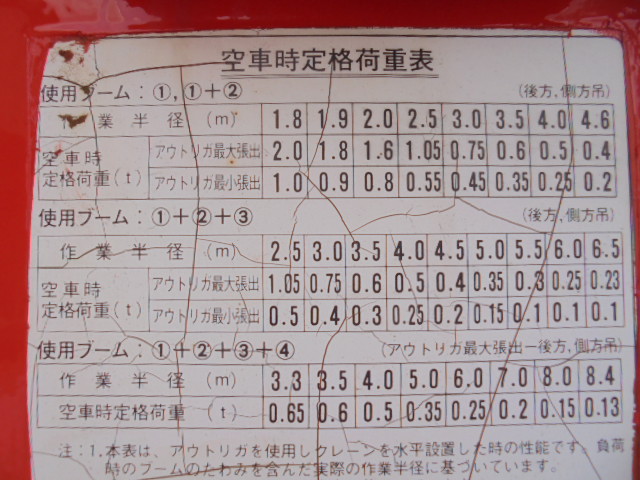 空車時定格荷重表
使用ブーム：①,①＋② （後方,側方吊）
作業半径（m） 1.8 1.9 2.0 2.5 3.0 3.5 4.0 4.6
空車時定格荷重（t） アウトリガ最大張出 2.0 1.8 1.6 1.05 0.75 0.6 0.5 0.4
アウトリガ最小張出 1.0 0.9 0.8 0.55 0.45 0.35 0.25 0.2
使用ブーム：①＋②＋③ （後方,側方吊）
作業半径（m） 2.5 3.0 3.5 4.0 4.5 5.0 5.5 6.0 6.5
空車時定格荷重（t） アウトリガ最大張出 1.05 0.75 0.6 0.5 0.4 0.35 0.3 0.25 0.23
アウトリガ最小張出 0.5 0.4 0.3 0.25 0.2 0.15 0.1 0.1 0.1
使用ブーム：①＋②＋③＋④ （アウトリガ最大張出－後方,側方吊）
作業半径（m） 3.3 3.5 4.0 5.0 6.0 7.0 8.0 8.4
空車時定格荷重（t） 0.65 0.6 0.5 0.35 0.25 0.2 0.15 0.13
注：1,本表は、アウトリガを使用しクレーンを水平設置した時の性能です。負荷
時のブームのたわみを含んだ実際の作業半径に基づいています。